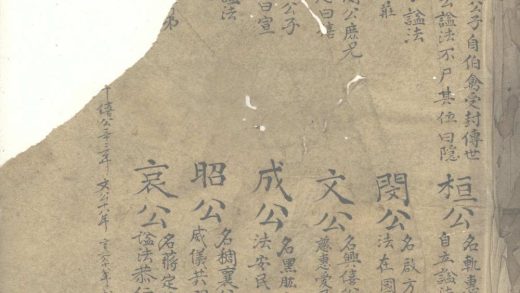 公子自伯禽受封傳世
公諡法不尸其位曰隱
桓公
名軌惠
自立諡法
諡法
莊
閔公
名啟方
法在國
閔公庶兄
曰僖
文公
名興僖公
慈惠愛
公子
曰宣
成公
名黑肱
法安民
諡法
昭公
名稠襄
威儀共
弟
哀公
名蔣定
諡法恭仁
僖公三十三年 文公十八年